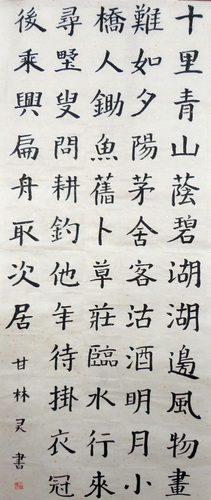 十里青山蔭碧湖湖邊風物畫
難如夕陽茅舍客沽酒明月小
橋人鋤魚舊卜草莊臨水行來
尋墅叟問耕釣他年待掛衣冠
後乘興扁舟取次居
甘林灵書